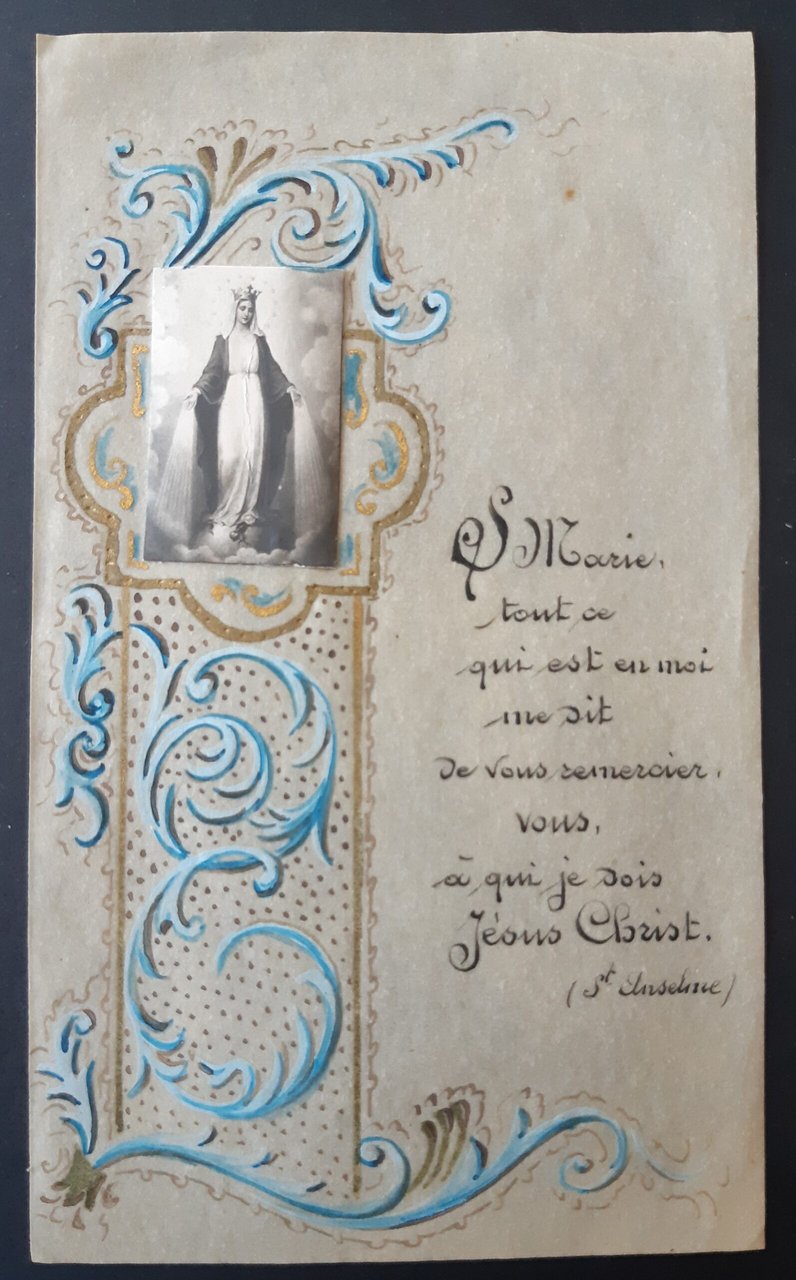 Ô Marie,
tout ce
qui est en moi
me dit
de vous remercier,
vous,
à qui je dois
Jésus Christ.
(St Anselme)